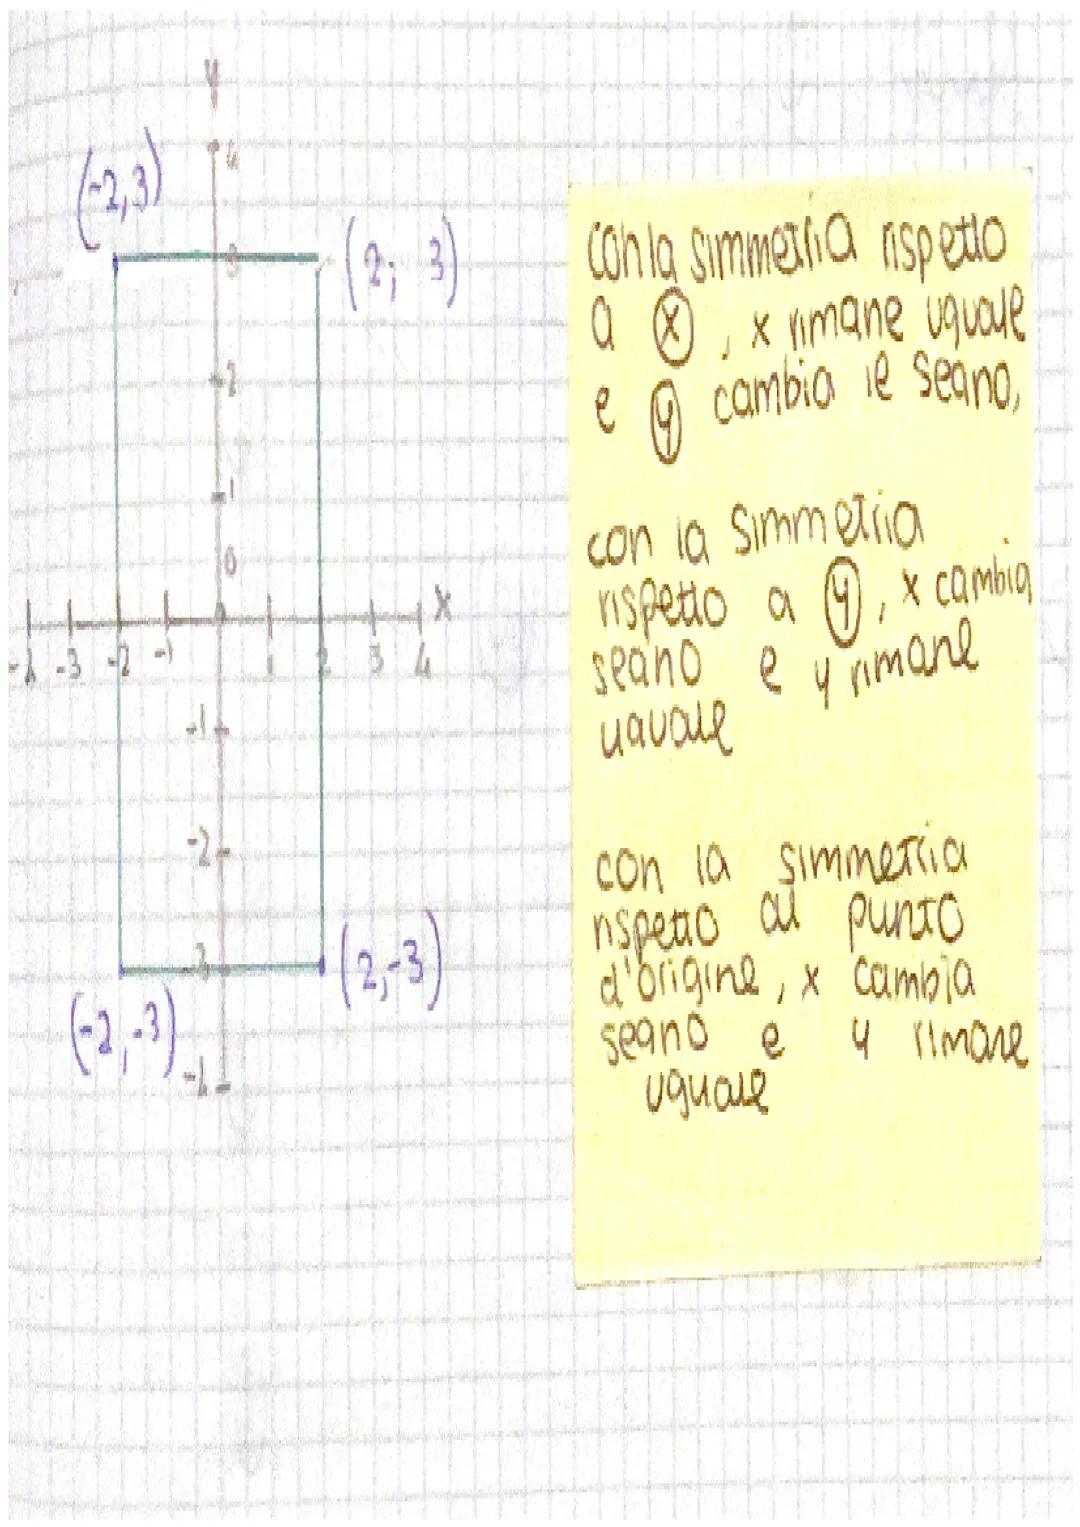 y
4
(-2,3)
3
(2; 3)
2
1
0
x
-4 -3 -2 -1 1 2 3 4
-1
-2
-3
(2,-3)
(-2,-3)
-4
con la simmetria rispetto
a x, x rimane uguale
e y cambia le segno,
con la simmetria
rispetto a y, x cambia
segno e y rimane
uguale
con la simmetria
rispetto al punto
d'origine, x cambia
segno e y rimane
uguale